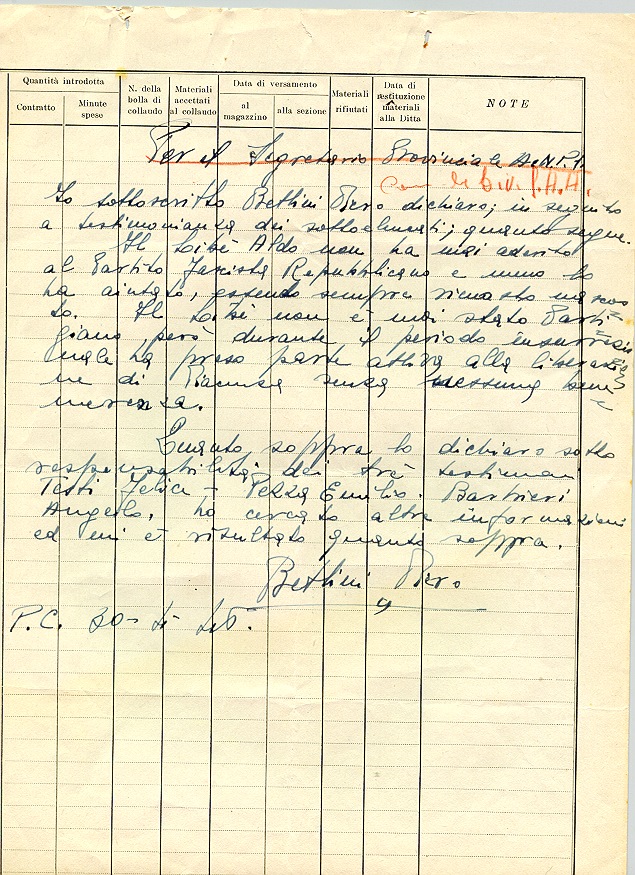 Quantità introdotta
Contratto
Minute spese
N. della bolla di collaudo
Materiali accettati al collaudo
Data di versamento
al magazzino
alla sezione
Materiali rifiutati
Data di restituzione materiali alla Ditta
NOTE
Per il Segretario Provinciale A.N.P.I.
Io sottoscritto Bettini Piero dichiaro; in seguito
a testimonianza dei sottoelencati; quanto segue.
Il Aldo non ha mai aderito
al Partito Facista Repupplicano e
ha aiutato, essendo sempre rimasto nascos
to. Il non è mai stato Parti
giano, però durante il periodo insurrezio
nale ha preso parte attiva alla liberazio
ne di senza nessuna bene
merenza.
Quanto soppra lo dichiaro sotto
responsabilità dei tre testimoni
Testi Felice - Pezza Emilio. Barbieri
Angelo, ho cercato altre informazioni
ed mi è risultato quanto soppra.
Bettini Piero
P.C. 30-